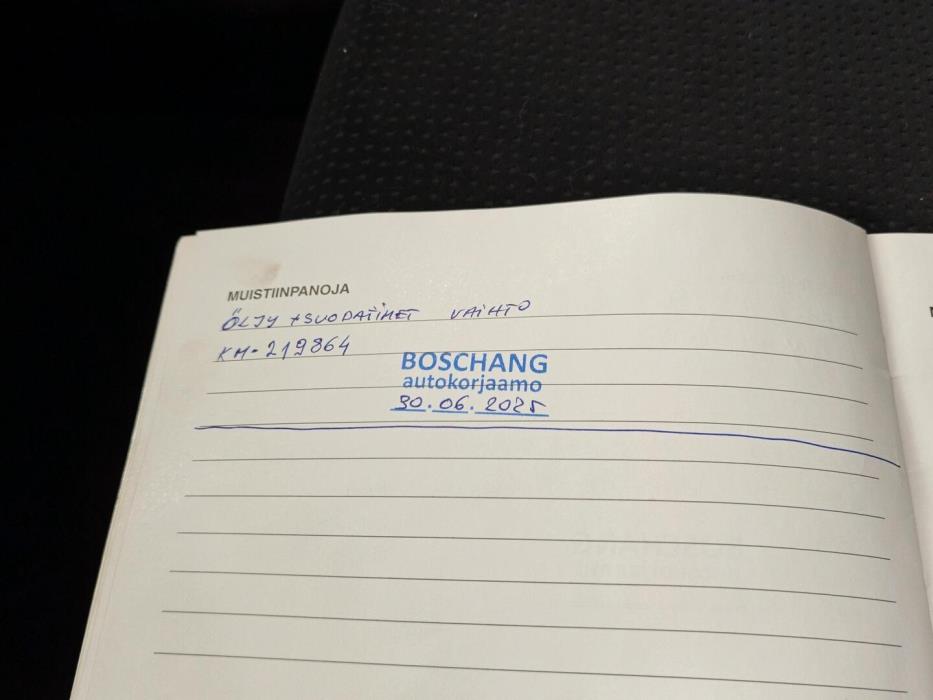 MUISTIINPANOJA
ÖLJY + SUODATIMET VAIHTO
KM- 219864
BOSCHANG
autokorjaamo
30.06.2025